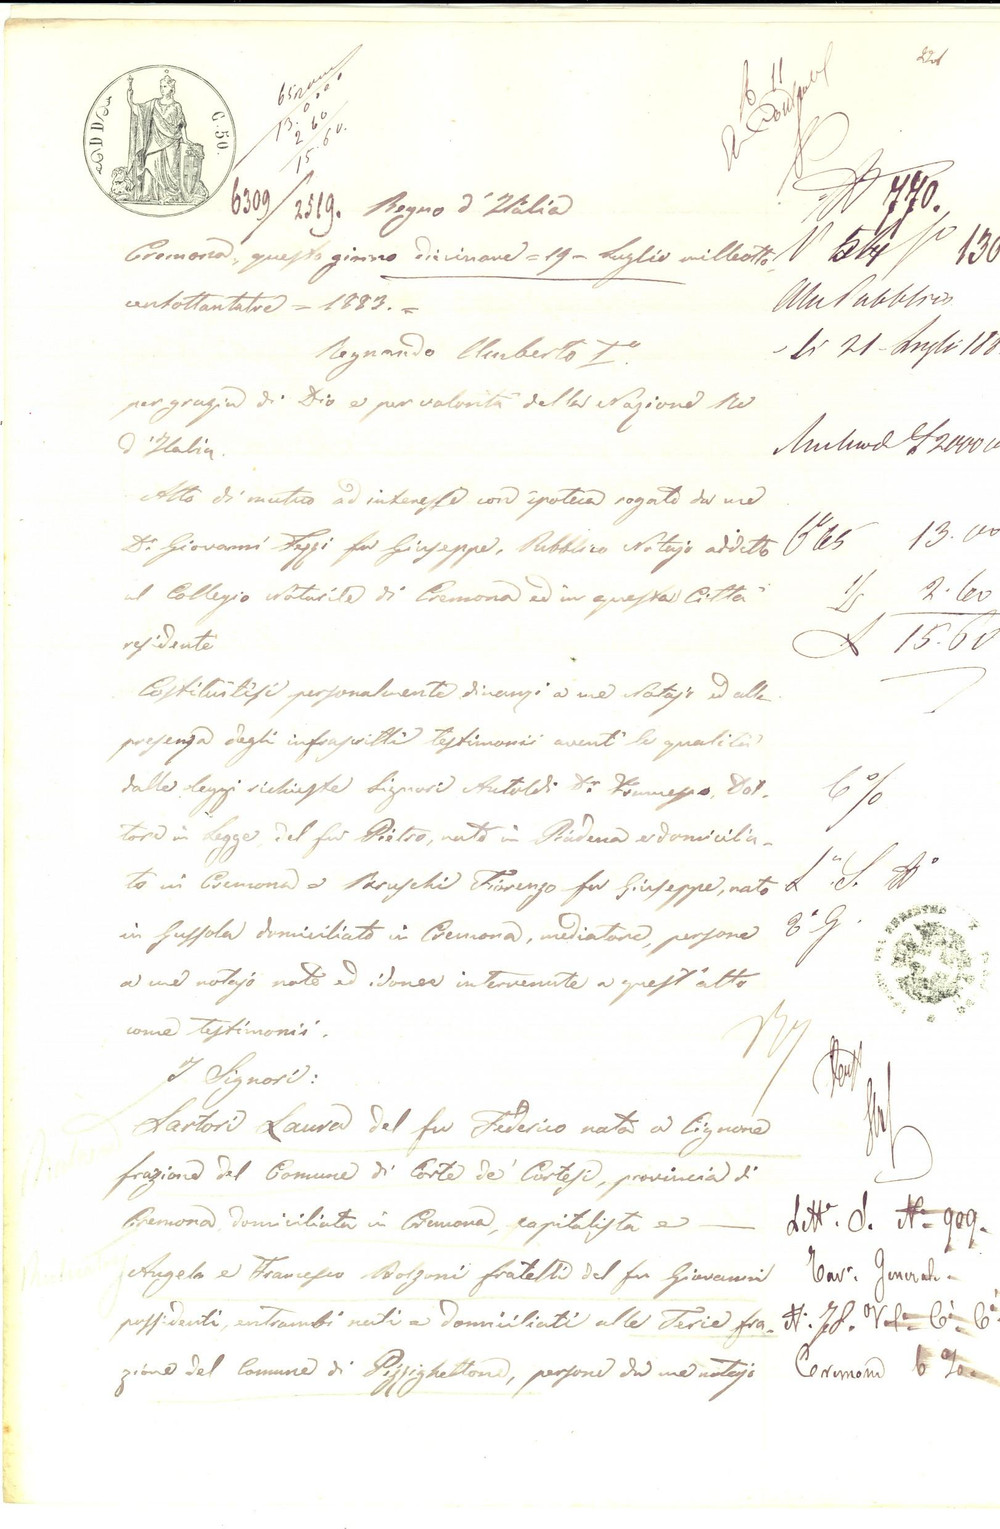 C. 50.
13.
2 60
15. 60.
N° 770.
6309/2519. Regno d'Italia
Cremona, questo giorno diecinove = 19 = Luglio milleotto
centottantatre = 1883. =
Regnando Umberto I°.
per grazia di Dio e per volontà della Nazione Re
d'Italia.
Atto di mutuo ad interesse con ipoteca rogato da me
Dr. Giovanni Fezzi fu Giuseppe, Pubblico Notajo addetto
al Collegio Notarile di Cremona ed in questa Città
residente
Costituitisi personalmente dinanzi a me Notajo ed alla
presenza degli infrascritti testimonii aventi le qualità
dalle leggi richieste Signori Antoldi Dr. Francesco, Dot-
tore in Legge, del fu Pietro, nato in Piadena e domicilia-
to in Cremona e Bruschi Fiorenzo fu Giuseppe, nato
in Gussola domiciliato in Cremona, mediatore, persone
a me notajo note ed idonee intervenute a quest'atto
come testimonii.
I Signori:
Sartori Laura del fu Federico nata a Cignone
frazione del Comune di Corte de' Cortesi, provincia di
Cremona, domiciliata in Cremona, capitalista e
Angela e Francesco Bolzoni fratelli del fu Giovanni
possidenti, entrambi nati e domiciliati alle Ferie fra-
zione del Comune di Pizzighettone, persone da me notajo
130
Atti Pubblici
li 21 Luglio 188
13. 00
2. 60
15. 60
6%
Lett. S. N° 909.
Tav. Generale
Cremona